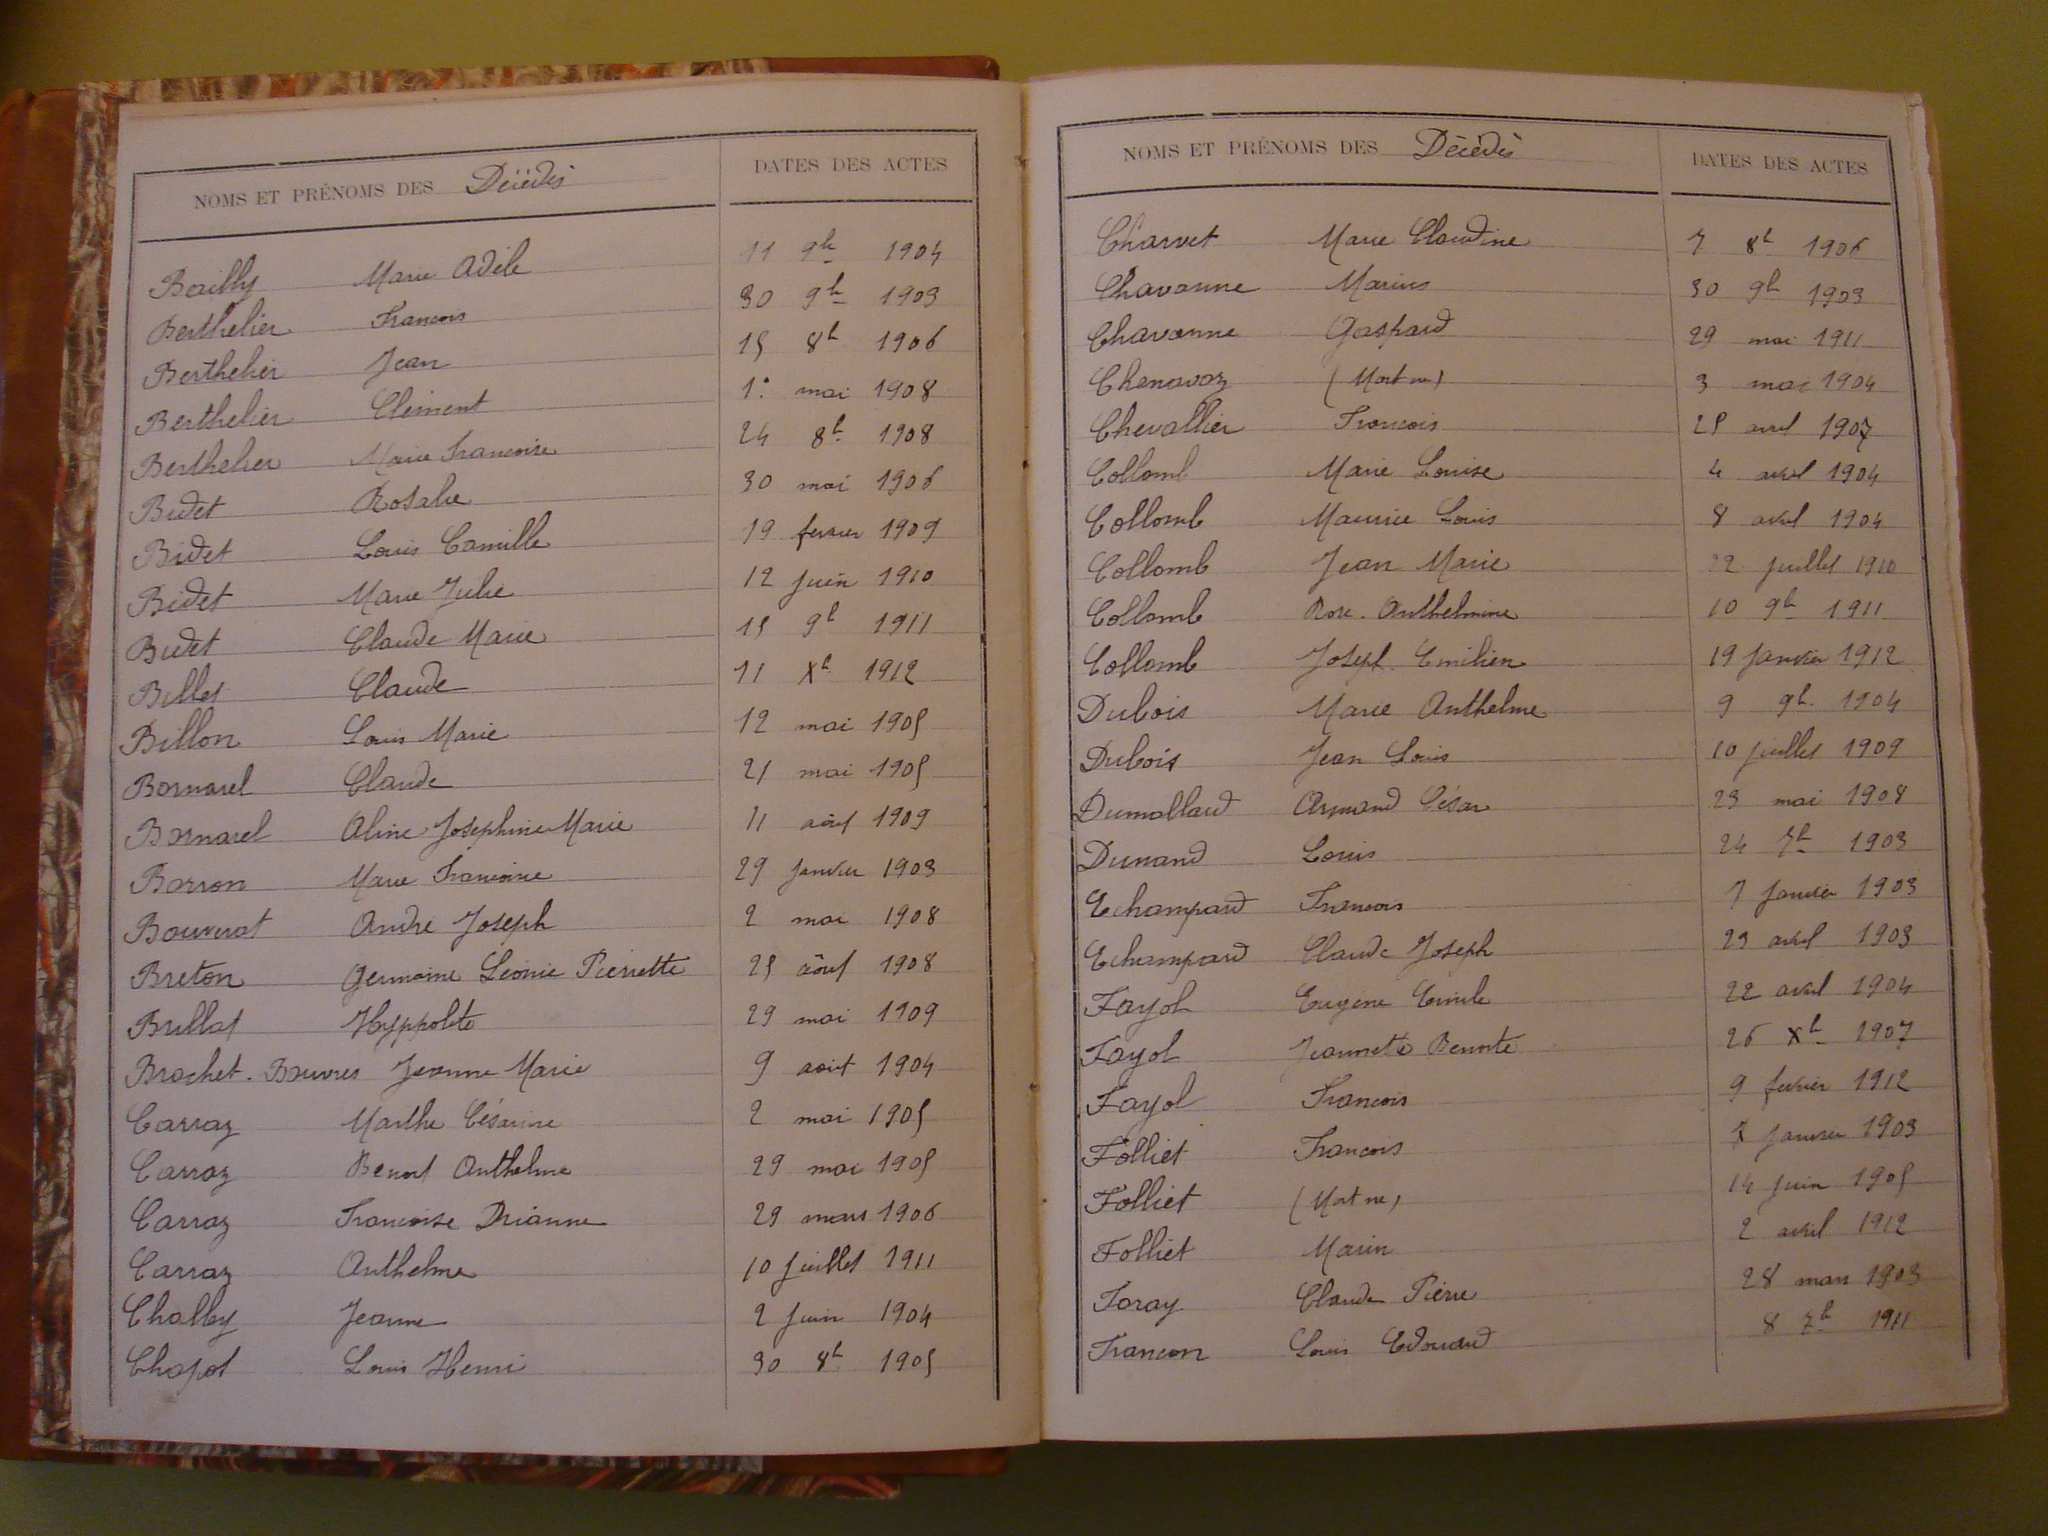 NOMS ET PRÉNOMS DES Décédés DATES DES ACTES
Bailly Marie Adèle 11 9b 1904
Berthelier Francois 30 9b 1903
Berthelier Jean 15 8b 1906
Berthelier Clément 1. mai 1908
Berthelier Marie Francoise 24 8b 1908
Bidet Rosalie 30 mai 1906
Bidet Louis Camille 19 fevrier 1909
Bidet Marie Julie 12 juin 1910
Bidet Claude Marie 15 9b 1911
Billet Claude 11 Xb 1912
Billon Louis Marie 12 mai 1905
Bornarel Claude 21 mai 1905
Bornarel Aline Josephine Marie 11 août 1909
Borron Marie Francoise 29 janvier 1903
Bouverat André Joseph 2 mai 1908
Breton Germaine Léonie Pierrette 25 août 1908
Brillat Hyppolite 29 mai 1909
Brochet. Bouvres Jeanne Marie 9 aout 1904
Carraz Marthe Césarine 2 mai 1905
Carraz Benoit Anthelme 29 mai 1905
Carraz Francoise Drianne 29 mars 1906
Carraz Anthelme 10 juillet 1911
Challey Jeanne 2 juin 1904
Chapot Louis Henri 30 8b 1905
NOMS ET PRÉNOMS DES Décédés DATES DES ACTES
Charvet Marie Claudine 7 8b 1906
Chavanne Marius 30 9b 1903
Chavanne Gaspard 29 mai 1911
Chenavaz (Mort né) 3 mai 1904
Chevallier Francois 25 avril 1907
Collomb Marie Louise 4 avril 1904
Collomb Maurice Louis 8 avril 1904
Collomb Jean Marie 22 juillet 1910
Collomb Rose. Anthelmine 10 9b 1911
Collomb Joseph Emilien 19 janvier 1912
Dubois Marie Anthelme 9 9b 1904
Dubois Jean Louis 10 juillet 1909
Dumollard Armand César 23 mai 1908
Dunand Louis 24 7b 1903
Echampard Francois 7 janvier 1903
Echampard Claude Joseph 23 avril 1903
Fayol Eugène Emile 22 avril 1904
Fayol Jeannette Benoite 26 Xb 1907
Fayol Francois 9 fevrier 1912
Folliet Francois 7 janvier 1903
Folliet (Mort né) 14 juin 1905
Folliet Marin 2 avril 1912
Foray Claude Pierre 28 mars 1903
Francon Louis Edouard 8 7b 1911